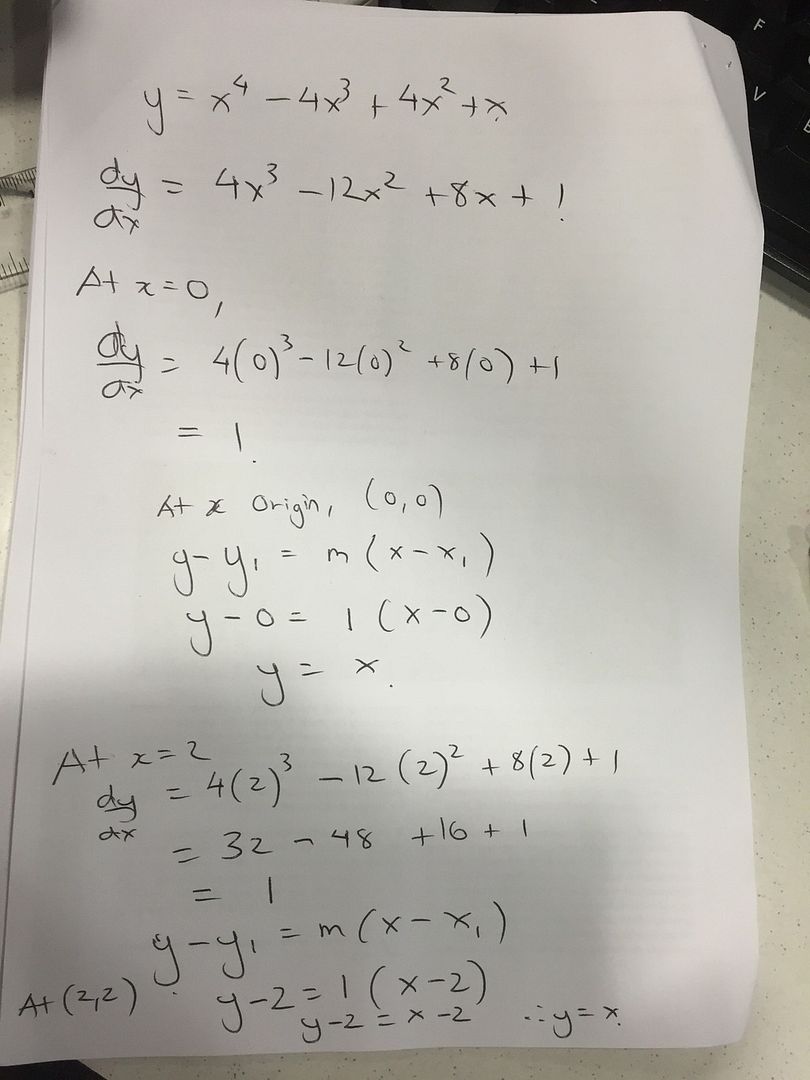 y = x⁴ - 4x³ + 4x² + x
dy/dx = 4x³ - 12x² + 8x + 1
At x = 0,
dy/dx = 4(0)³ - 12(0)² + 8(0) + 1
= 1.
At x Origin, (0,0)
y - y₁ = m(x - x₁)
y - 0 = 1(x - 0)
y = x.
At x = 2
dy/dx = 4(2)³ - 12(2)² + 8(2) + 1
= 32 - 48 + 16 + 1
= 1
y - y₁ = m(x - x₁)
At (2,2) y - 2 = 1(x - 2)
y - 2 = x - 2 ∴ y = x.
F
V